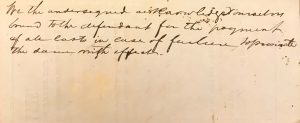 We the undersigned acknowledge ourselves
bound to the defendant for the payment
of all cost in case of failure to prosecute
the same with effect.